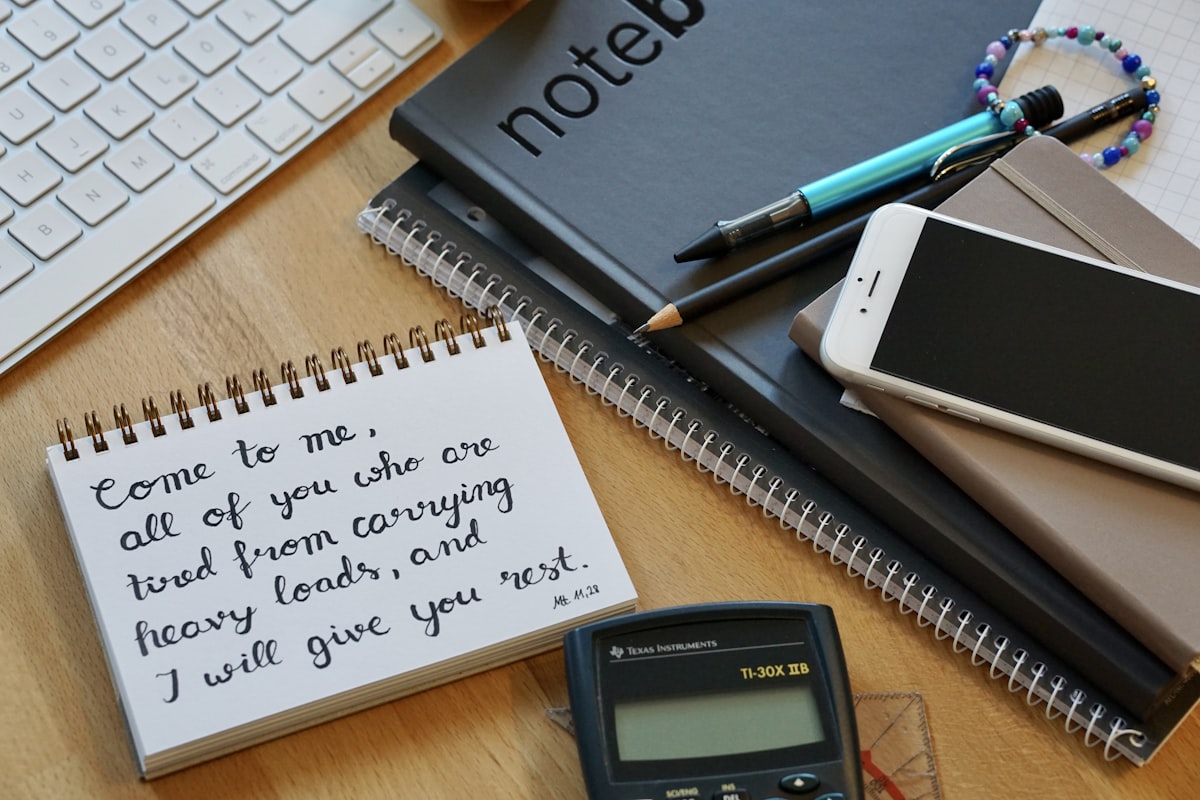 9
0
P
Å
8
I
O
L
Ö
U
K
J
M
command
H
N
B
noteb
Come to me,
all of you who are
tired from carrying
heavy loads, and
I will give you rest.
Mt. 11,28
TEXAS INSTRUMENTS
TI-30X IIB
SCI/ENG
INS
DEL